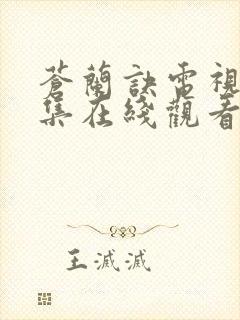 蒼蘭訣電視
集在綫觀看
王滅滅